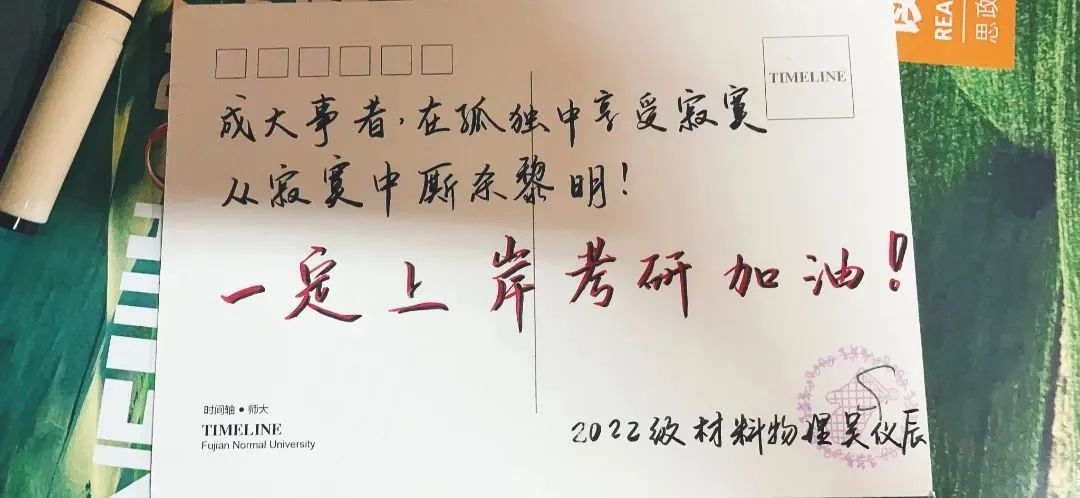 TIMELINE
成大事者,在孤独中享受寂寞
从寂寞中厮杀黎明!
一定上岸考研加油!
时间轴•师大
TIMELINE
Fujian Normal University
2022级材料物理吴仪辰
REA
思政